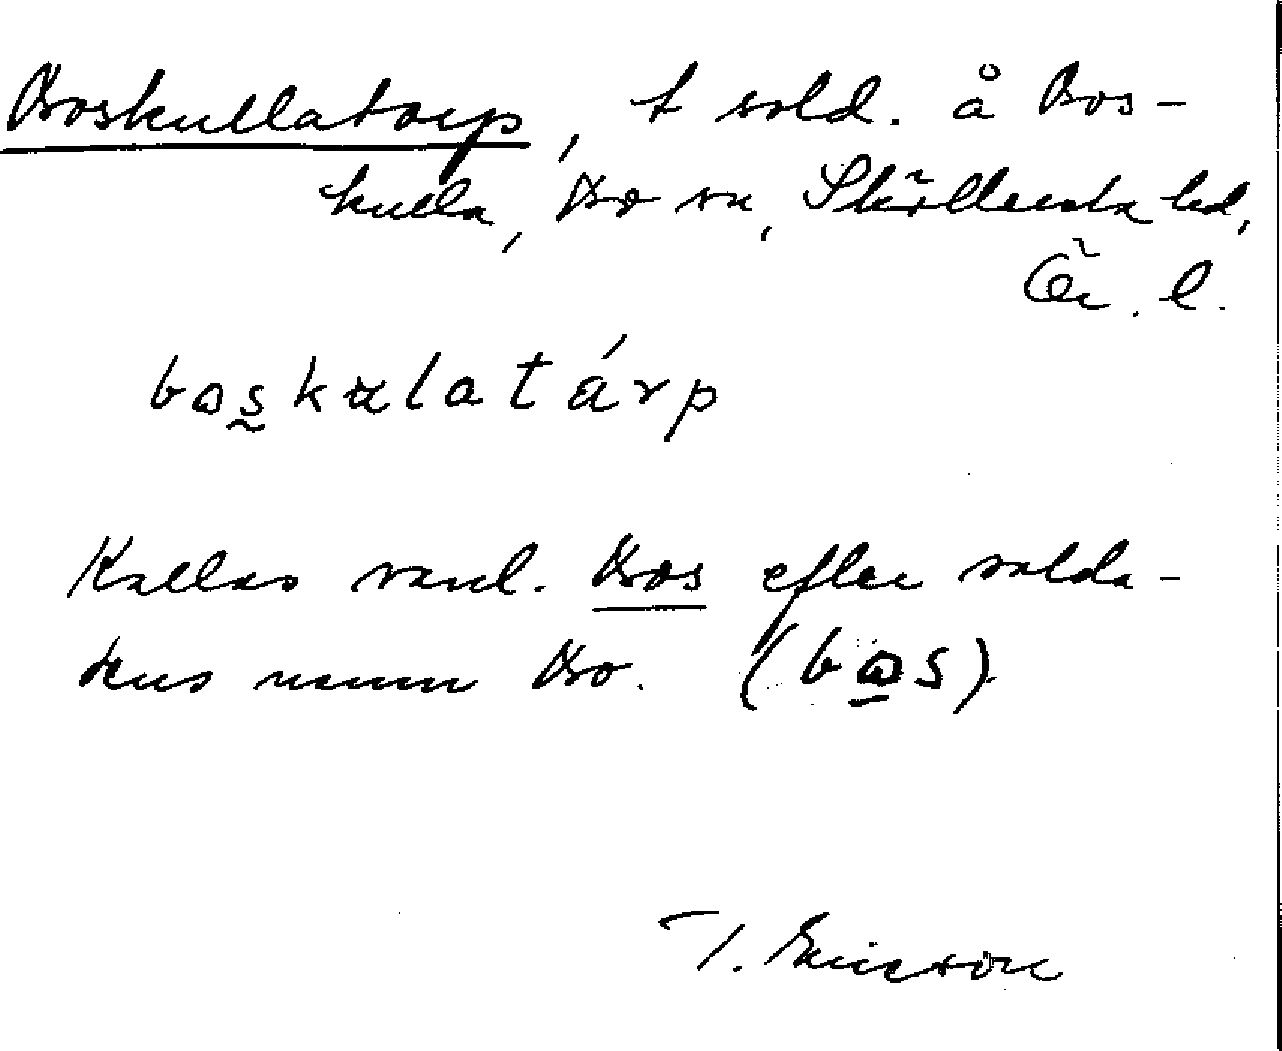 Boskullatorp, t sold. å Bos-
kulla, Bo sn, Sköllersta hd,
Ör. l.
bɷs̰kulatárp
Kallas vanl. Bos efter solda-
tens namn Bo. (bɷ̲s)
T. Ericsson